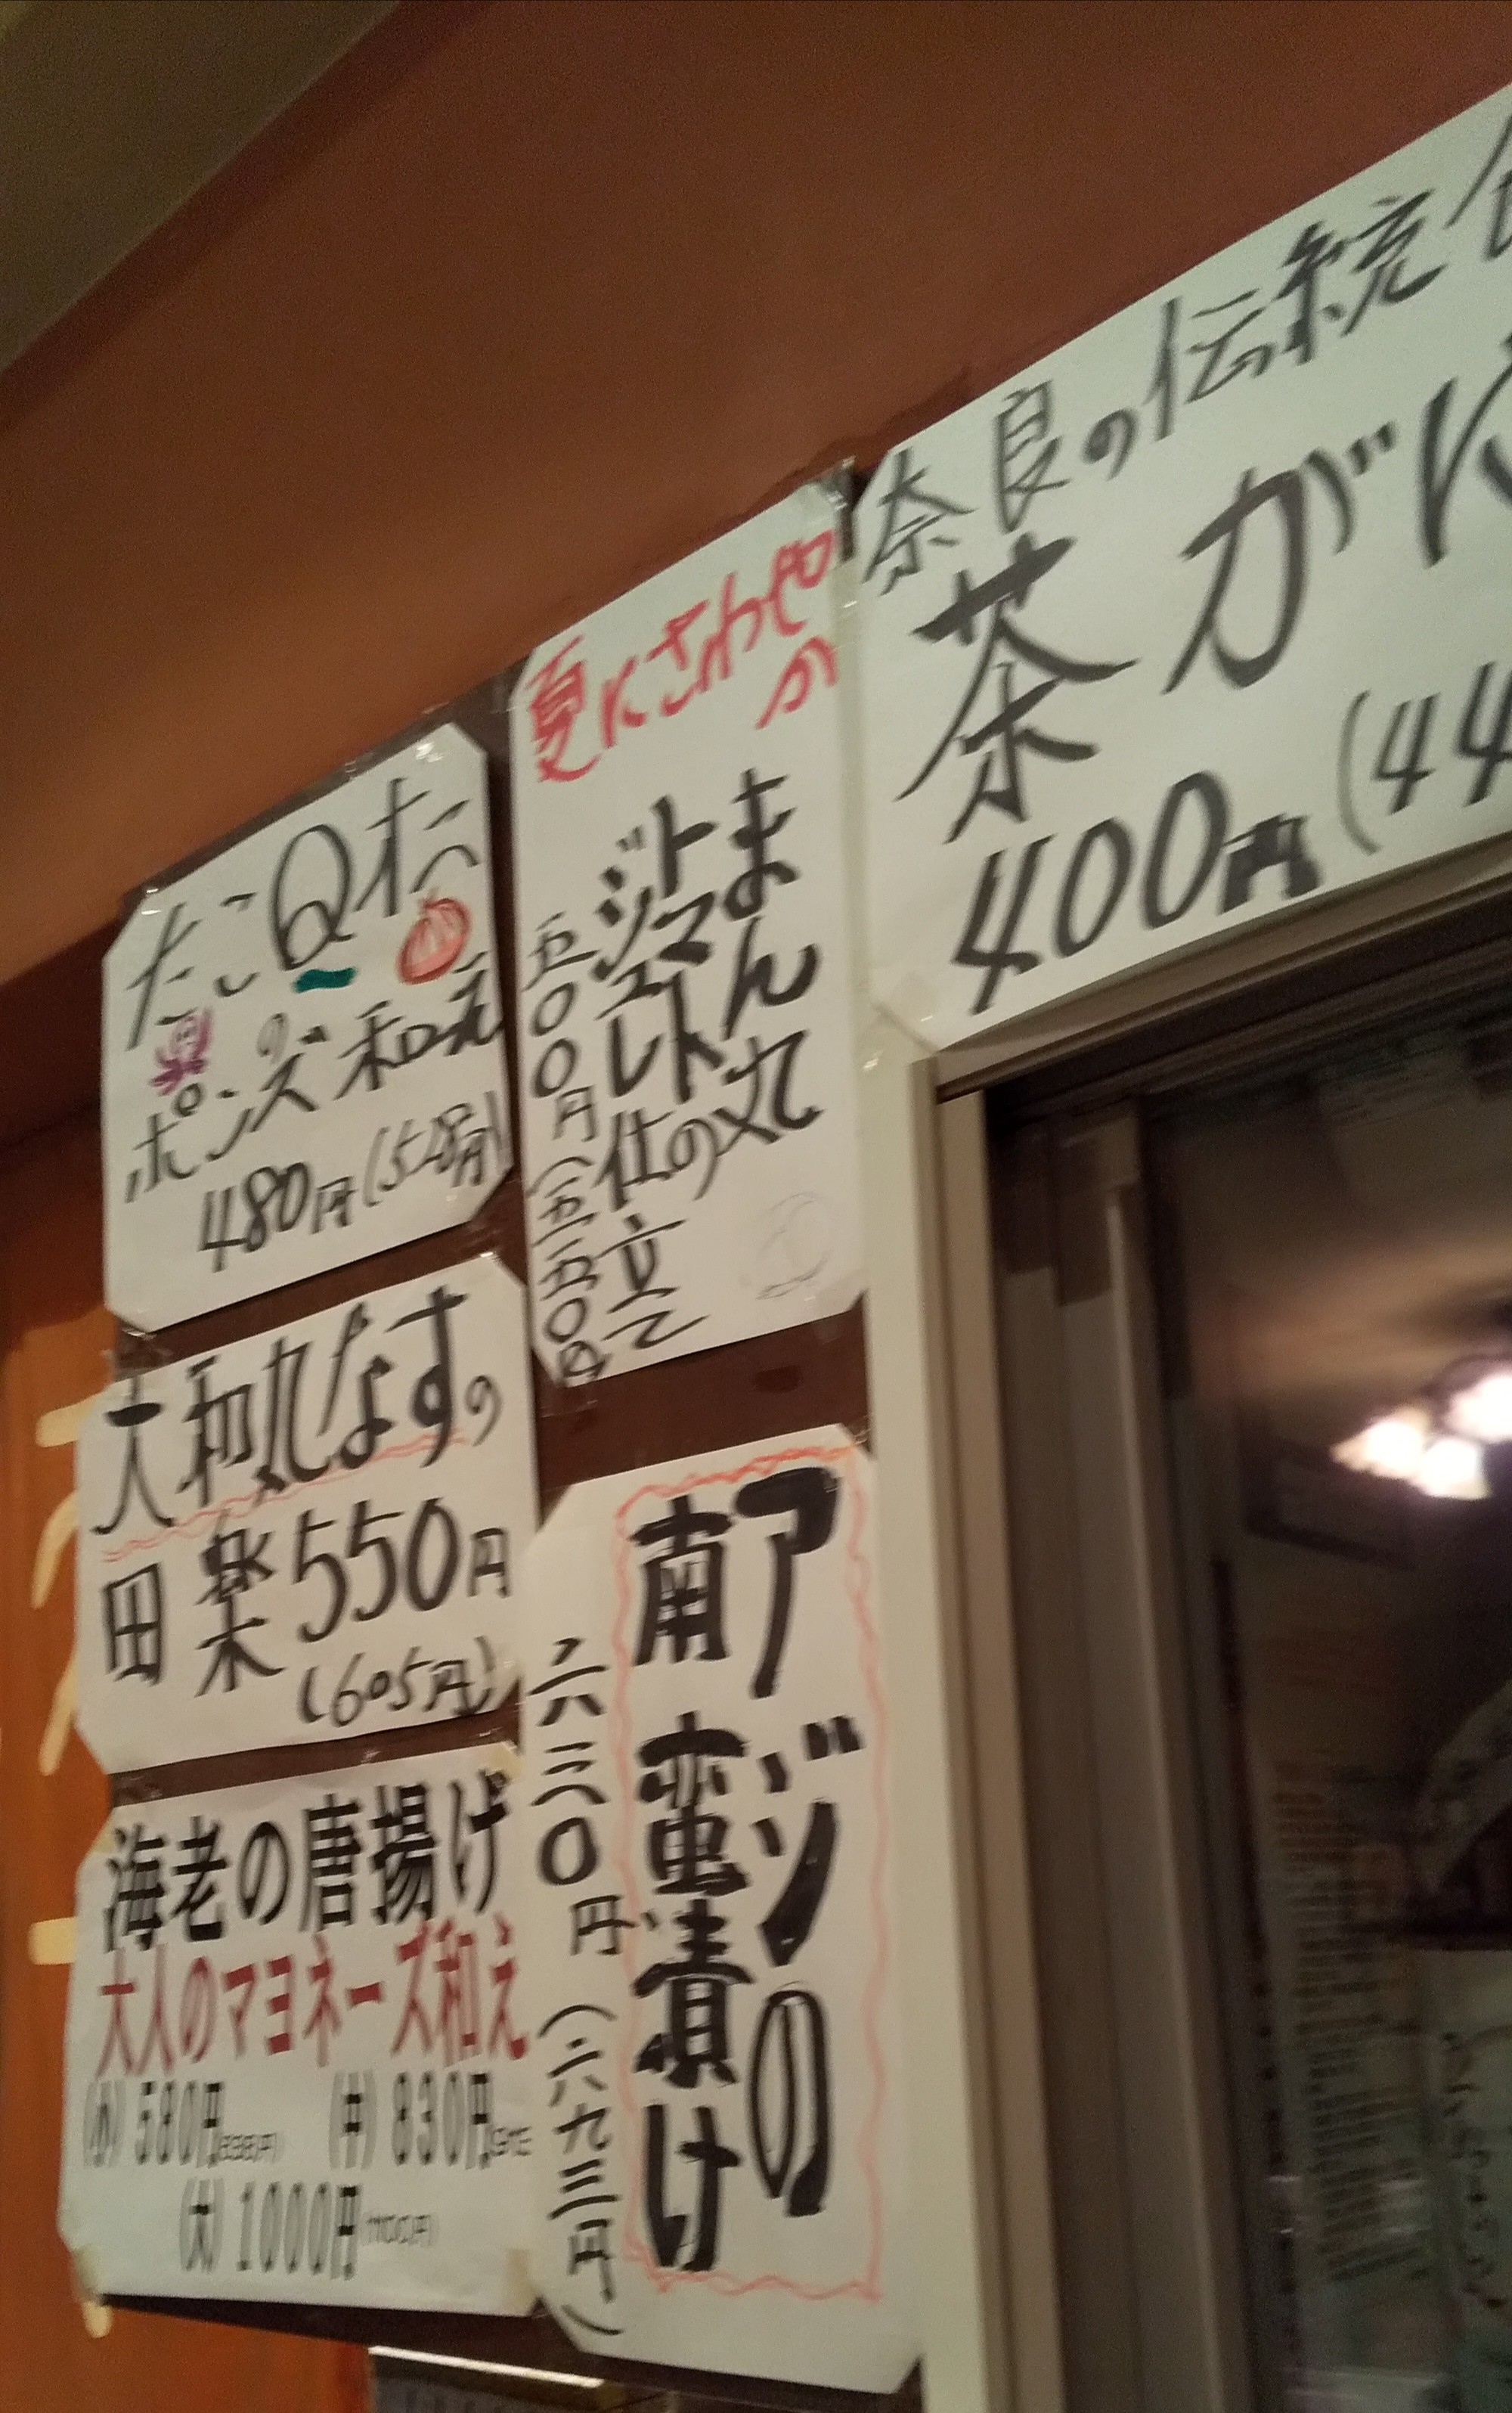 たこQたの
ポンズ和え
480円(528円)
夏にさわやか
まん丸の
トマト
ジュレ仕立て
五〇〇円(五五〇円)
奈良の伝統
茶がん
400円(44
大和丸なすの
田楽 550円
(605円)
アジの
南蛮漬け
六三〇円(六九三円)
海老の唐揚げ
大人のマヨネーズ和え
(小)580円 (中)830円
(大)1000円(1100円)